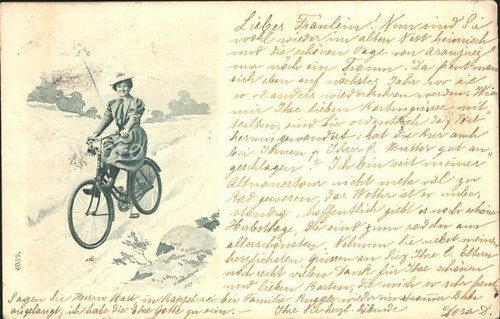 Liebes Fräulein! Nun sind Sie
wohl wieder im alten Nest heimisch
und die schönen Tage von Aranjuez
nur noch ein Traum. Da freut man
sich eben auf nächstes Jahr wo sie
wo anders wiederkehren werden. Wie
mir Ihre lieben Kartengrüsse mit-
teilten, sind Sie ordentlich dort
herumgewandert; hat die Kur auch
bei Ihnen u. Ihrer l. Mutter gut an-
geschlagen? Ich bin seit meiner
nicht mehr viel zu
Rad gewesen, das Wetter ist so unbe-
ständig; hoffentlich giebt es noch schöne
Herbsttage, die sind zum radeln am
allerschönsten. Nehmen Sie nebst meinen
herzlichsten Grüssen an Sie, Ihre l. Eltern
noch recht vielen Dank für Ihre schönen
und lieben Karten, die mich so sehr freuen
Sagen Sie Herrn in Kappel sei bei Familie
angelangt, ich habe die Ehre Gotte zu sein.-
Ihre Sie herzl. liebende Dora D.
6039.